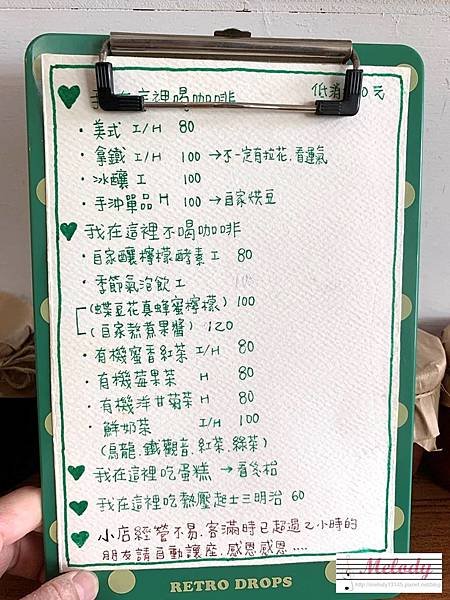 我在這裡喝咖啡 低消
・美式 I/H 80
・拿鐵 I/H 100 →不一定有拉花,看運氣
・冰釀 I 100
・手沖單品 H 100 →自家烘豆
我在這裡不喝咖啡
・自家釀檸檬酵素 I 80
・季節氣泡飲 I
(蝶豆花真蜂蜜檸檬) 100
(自家熬煮果醬) 120
・有機蜜香紅茶 I/H 80
・有機莓果茶 H 80
・有機洋甘菊茶 H 80
・鮮奶茶 I/H 100
(烏龍.鐵觀音.紅茶.綠茶)
我在這裡吃蛋糕 →看冬箱
我在這裡吃熱壓起士三明治 60
小店經營不易,客滿時已超過2小時的
朋友請自動讓座,感恩感恩....
RETRO DROPS
Melody